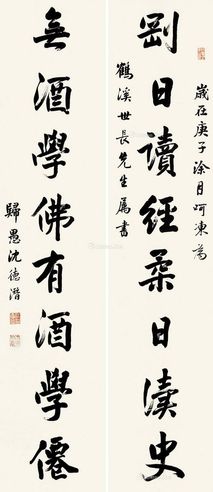 歲在庚子涂月呵凍為
剛日讀經柔日讀史
鶴溪世長先生屬書
無酒學佛有酒學僊
歸愚沈德潛